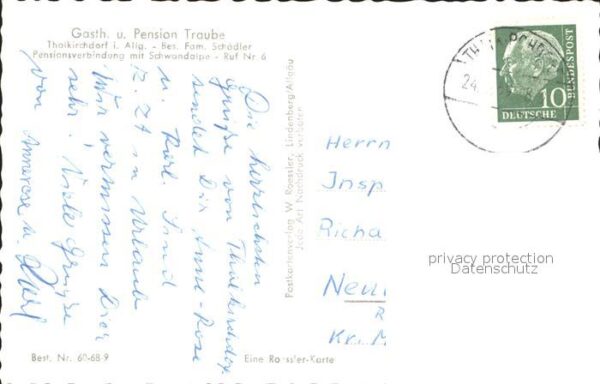 Gasth. u. Pension Traube
Thalkirchdorf i. Allg. - Bes. Fam. Schädler
Pensionsverbindung mit Schwandalpe - Ruf Nr 6
Die herzlichsten
Grüße von Thalkirchdorf
sendet Dir Anne-Rose
u. Karl. Sind
z. Zt in Urlaub
Wir vermissen Dich
sehr! Viele Grüße
von Annerose u. Karl
Postkartenverlag W Roessler, Lindenberg/Allgäu
Jede Art Nachdruck verboten
24.
DEUTSCHE
BUNDESPOST
10
Herrn
Insp
Richa
Neu
Kr. M
privacy protection
Datenschutz
Best. Nr. 60-68-9
Eine Roessler-Karte